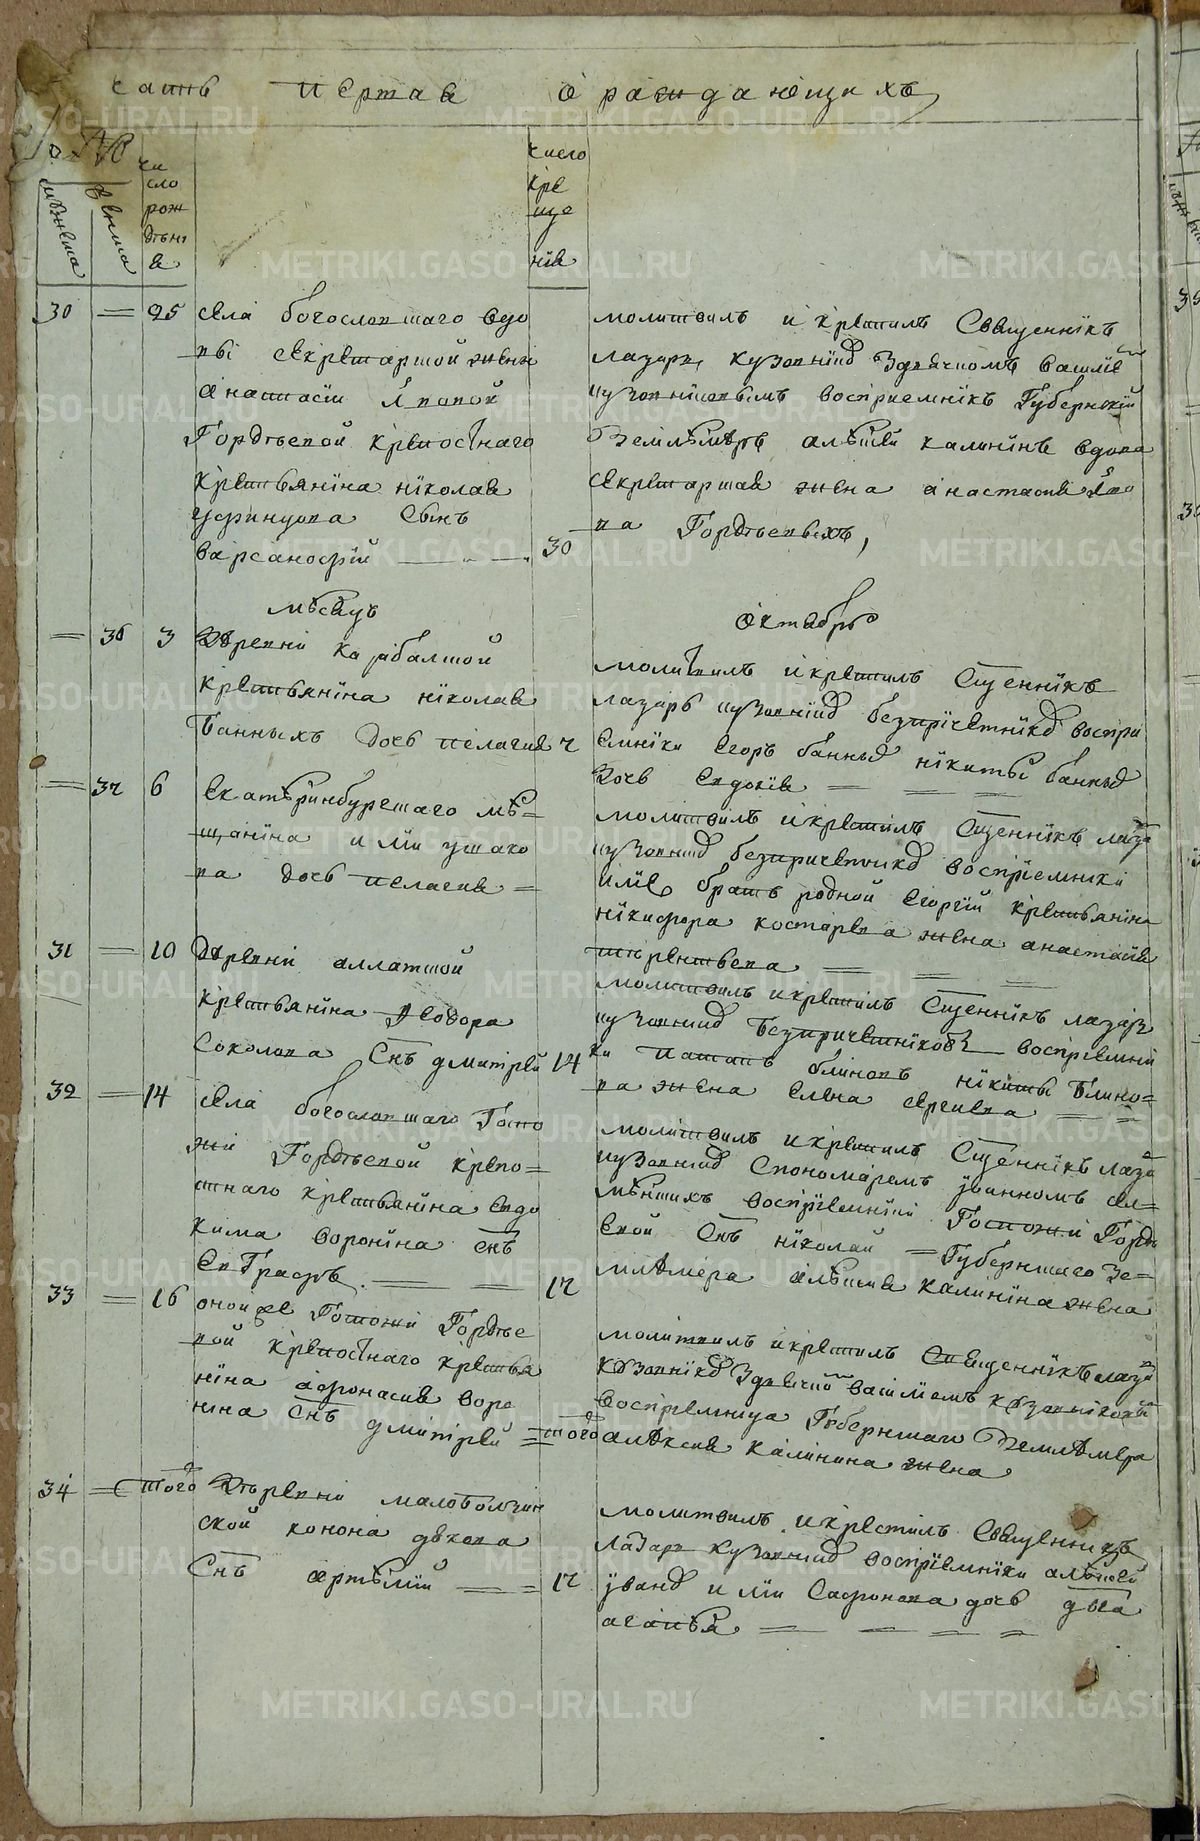 часть первая о раждающихся
№
мужеска
женска
чи
сло
рож
дѣнї
я
число
кре
ще
нїя
30 = 25 села богословшаго вдо
вы секретаршой жены
анастасїи
Гордѣевой крепостнаго
крестьянїна нїколая
сынъ
варсанофїй 30
молитвилъ и крестилъ священнїкъ
лазарь кузовнїко здьячкомъ васїлїе
кузовнїковымъ восприемнїкъ Губернскїй
Землѣмѣръ алѣѯѣй калинїнъ вдова
секретаршая жена анастасия
ва Гордѣевыхъ,
мѣсяцъ
октябрь
= 36 3 Дѣревни
крестьянїна нїколая
Банныхъ дочь пелагия 7
молитвилъ и крестилъ Сщеннїкъ
лазарь кузовнїко безпрїчетнїко воспри
емнїки Егоръ банныхъ нїкиты банныхъ
дочь Евдокїя
= 37 6 Екатерїнбуршаго мѣ=
щанїна илїи ушако
ва дочь пелагия =
молитвилъ и крестилъ Сщеннїкъ лаза
кузовнико безпричетнико воспрїемники
илїи братъ родной Егоргїй крестьянїна
нїкифора костарева жена анастасїя
терентьева
31 = 10 Дѣревни аллатшой
крестьянїна Ѳеодора
Соколова Снъ дмитрей 14
молитвилъ и крестилъ Сщеннїкъ лазарь
кузовнико безпричетнїковъ воспрїемни
ки потапъ блиновъ нїкиты Блино=
ва жена елена сергиева
32 = 14 села богословшаго Госпо
жи Гордѣевой крепо=
стнаго крестьянїна евдо
кима воронїна снъ
Евграфъ 17
молитвилъ и крестилъ Сщеннїкъ лаза
кузовнико Спономаремъ їванномъ се=
мѣнїшихъ воспрїемнїки Госпожи Горде
евой Снъ нїколай = Губерншаго Зе=
млѣмера алѣѯия калинїна жена
33 = 16 оной же Госпожи Гордѣе
вой крепостнаго крестья
нїна афонасия воро
нїна Снъ дмитрей = того
молитвилъ и крестилъ священнїкъ лаза
кузовнїко здьячкомъ васїлїемъ кузовнїковы
воспрїемница Губерншаго Землѣмера
алѣксия калинина жена
34 = того Дѣревни
ской конона
Снъ артѣмїй = 17
молитвилъ и крестилъ Священникъ
лазарь кузовнико воспрїемнїки алѣѯѣй
їванко илїи Сафонова дочь два
агапья